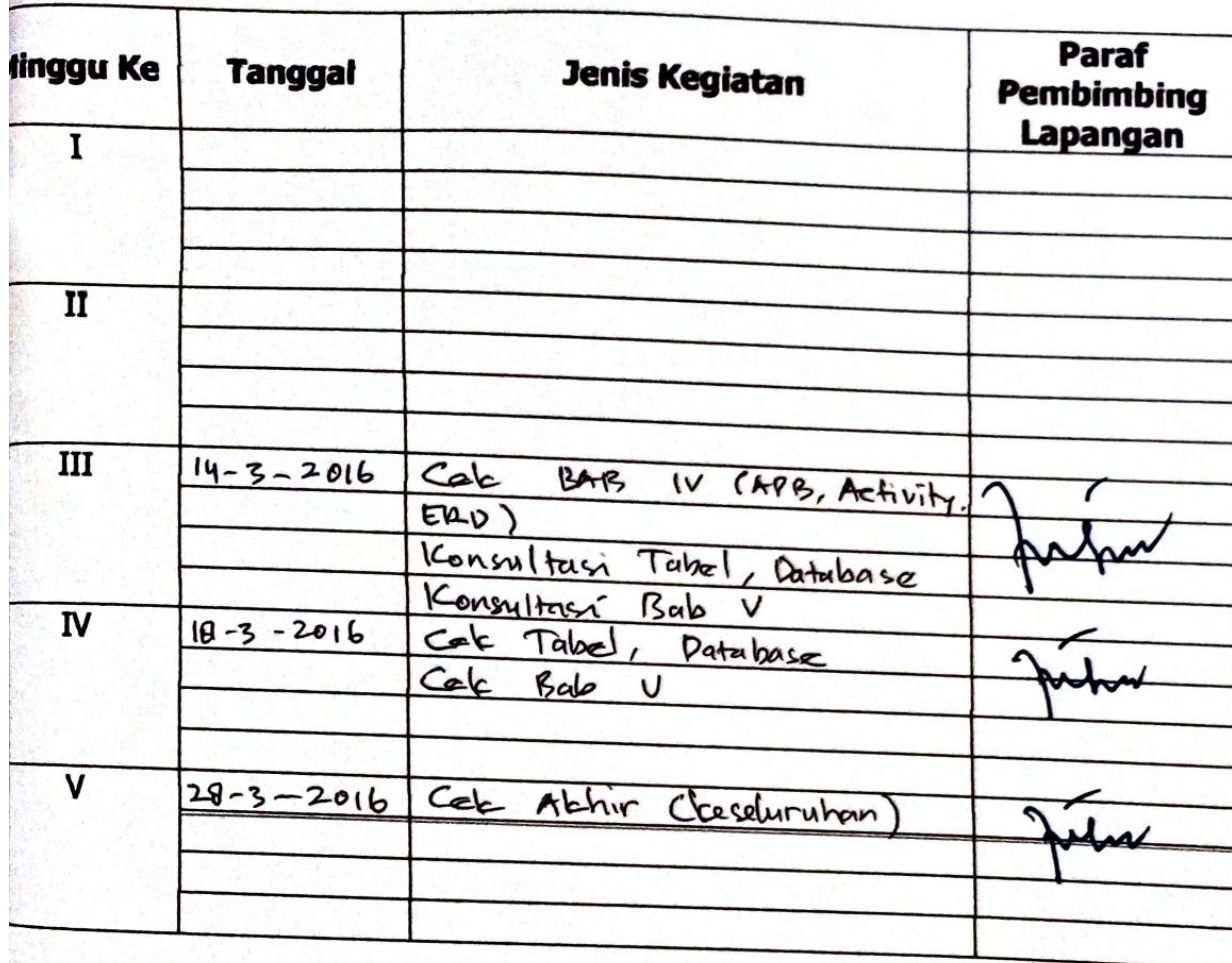 inggu Ke Tanggal Jenis Kegiatan Paraf
Pembimbing
Lapangan
I
II
III 14-3-2016 Cek BAB IV (APB, Activity,
ERD)
Konsultasi Tabel, Database
Konsultasi Bab V
IV 18-3-2016 Cek Tabel, Database
Cek Bab V
V 28-3-2016 Cek Akhir (keseluruhan)